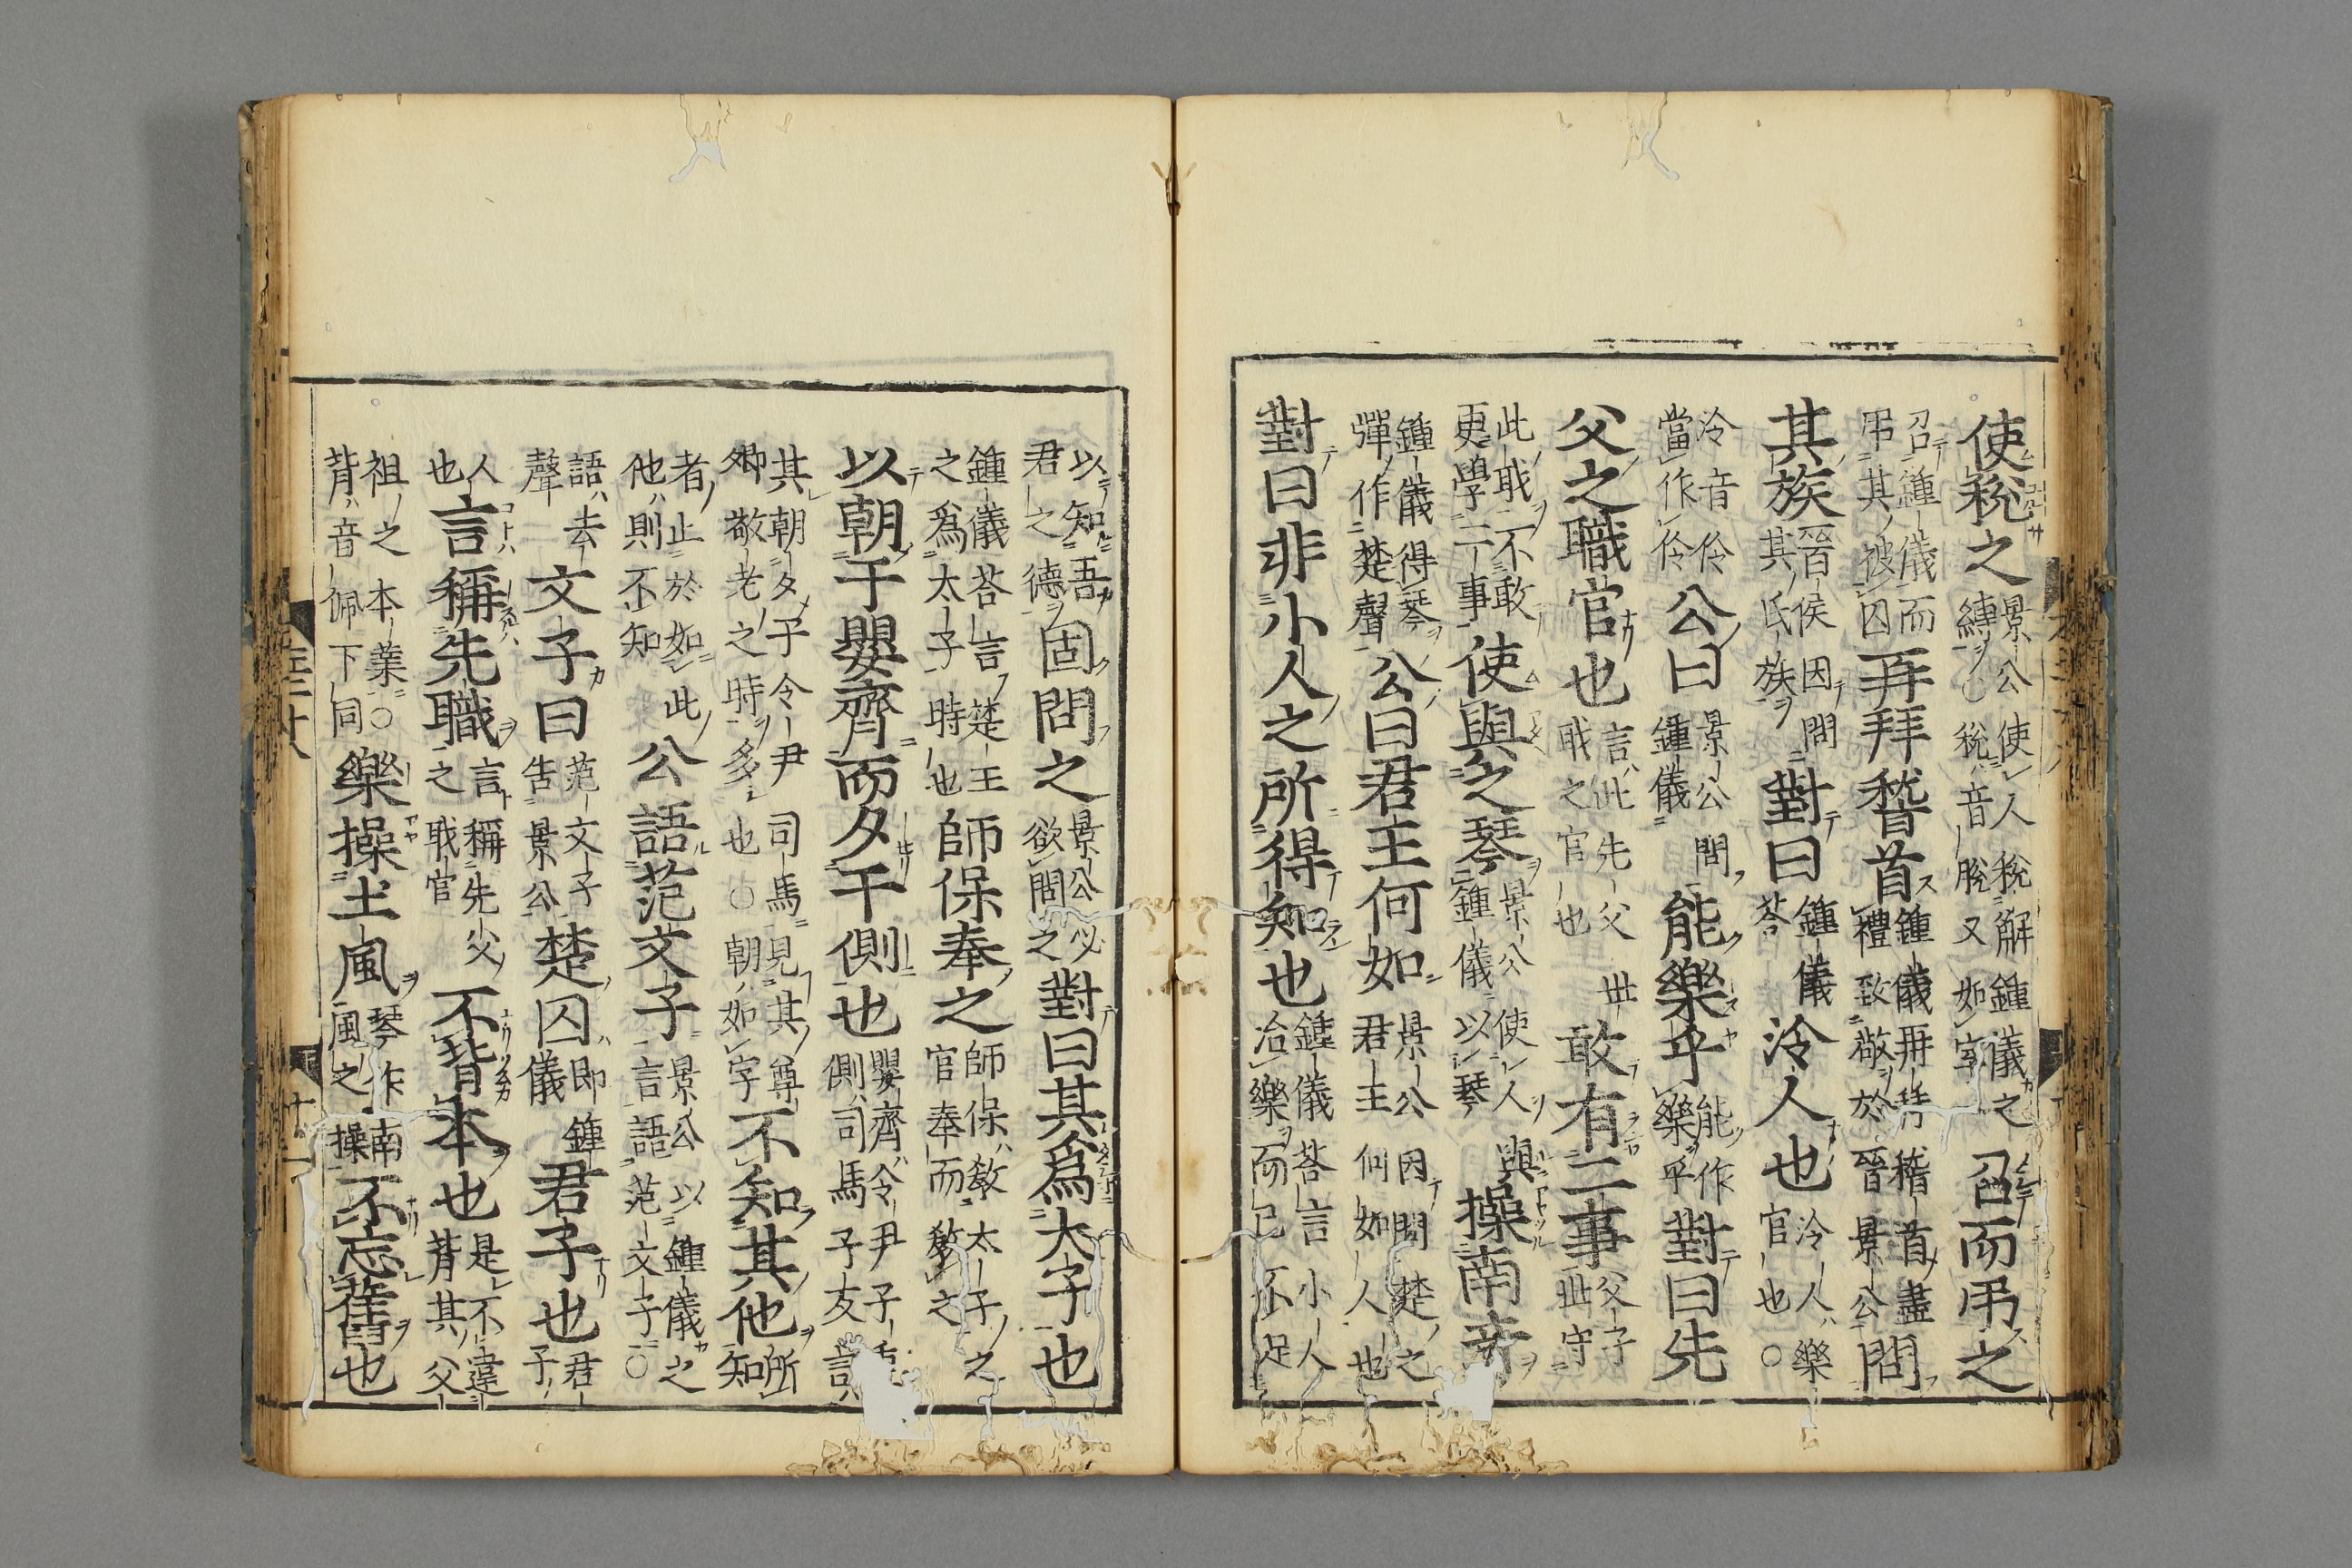 使稅之景公使人稅解鍾儀之縳○稅音脫又如字召而弔之
召鍾儀而弔其被囚再拜稽首鍾儀再拜稽首盡禮致敬於晉景公問
其族晉侯因問其氏族對曰鍾儀荅泠人也泠人樂官也○
泠音伶當作伶公曰景公問鍾儀能樂乎能作樂乎對曰先
父之職官也言此先父職之官也敢有二事父子世世守
此職不敢更學二事使與之琴景公使人以琴與鍾儀操南音
鍾儀得琴彈作楚聲公曰君王何如景公因問楚之君主何如人也
對曰非小人之所得知也鍾儀荅言小人冶樂而已不足
以知吾君之德固問之景公必欲問之對曰其爲大子也
鍾儀荅言楚王之爲太子時也師保奉之師保教太子之官奉而教之
以朝于嬰齊而夕于側也嬰齊令尹子重側司馬子反言
其朝夕于令尹司馬見其尊卿敬老之時多也○朝如字不知其他所知
者止於如此他則不知公語范文子景公以鍾儀之言語范文子○
語去聲文子曰范文子告景公楚囚即鍾儀君子也君子
人也言稱先職言稱先父之職官不背本也是不違背其父
祖之本業○背音佩下同樂操土風琴作南風之操不忘舊也